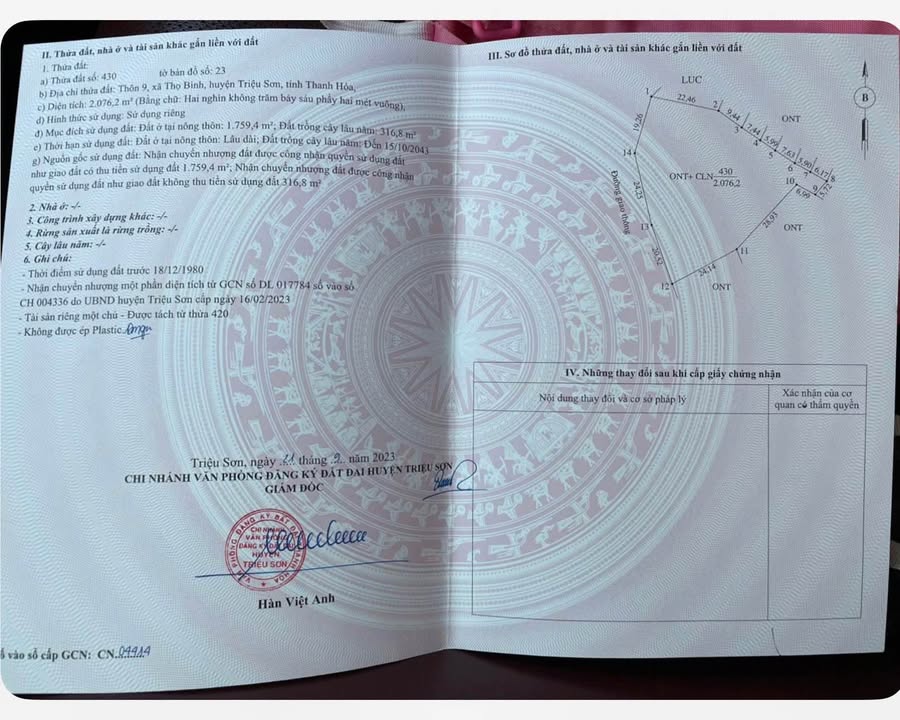 II. Thửa đất, nhà ở và tài sản khác gắn liền với đất
1. Thửa đất:
a) Thửa đất số: 430 tờ bản đồ số: 23
b) Địa chỉ thửa đất: Thôn 9, xã Thọ Bình, huyện Triệu Sơn, tỉnh Thanh Hóa,
c) Diện tích: 2.076,2 m² (Bằng chữ: Hai nghìn không trăm bảy sáu phẩy hai mét vuông),
d) Hình thức sử dụng: Sử dụng riêng
đ) Mục đích sử dụng đất: Đất ở tại nông thôn: 1.759,4 m²; Đất trồng cây lâu năm: 316,8 m²
e) Thời hạn sử dụng đất: Đất ở tại nông thôn: Lâu dài; Đất trồng cây lâu năm: Đến 15/10/2043
g) Nguồn gốc sử dụng đất: Nhận chuyển nhượng đất được công nhận quyền sử dụng đất
như giao đất có thu tiền sử dụng đất 1.759,4 m²; Nhận chuyển nhượng đất được công nhận
quyền sử dụng đất như giao đất không thu tiền sử dụng đất 316,8 m²
2. Nhà ở: -/-
3. Công trình xây dựng khác: -/-
4. Rừng sản xuất là rừng trồng: -/-
5. Cây lâu năm: -/-
6. Ghi chú:
- Thời điểm sử dụng đất trước 18/12/1980
- Nhận chuyển nhượng một phần diện tích từ GCN số DL 017784 số vào sổ
CH 004336 do UBND huyện Triệu Sơn cấp ngày 16/02/2023
- Tài sản riêng một chủ - Được tách từ thửa 420
- Không được ép Plastic
Triệu Sơn, ngày 21 tháng 9 năm 2023
CHI NHÁNH VĂN PHÒNG ĐĂNG KÝ ĐẤT ĐAI HUYỆN TRIỆU SƠN
GIÁM ĐỐC
CHI NHÁNH
VĂN PHÒNG
ĐĂNG KÝ ĐẤT ĐAI
HUYỆN
TRIỆU SƠN
Hàn Việt Anh
vào sổ cấp GCN: CN.
III. Sơ đồ thửa đất, nhà ở và tài sản khác gắn liền với đất
LUC
B
1
22,46
2
9,44
3
7,44
4
5,99
5
7,63
6
5,90
7
6,17
8
15,72
9
6,99
10
28,93
11
24,14
12
20,52
13
24,25
14
19,26
ONT
ONT
ONT
ONT+ CLN 430
2.076,2
Đường giao thông
IV. Những thay đổi sau khi cấp giấy chứng nhận
Nội dung thay đổi và cơ sở pháp lý
Xác nhận của cơ
quan có thẩm quyền